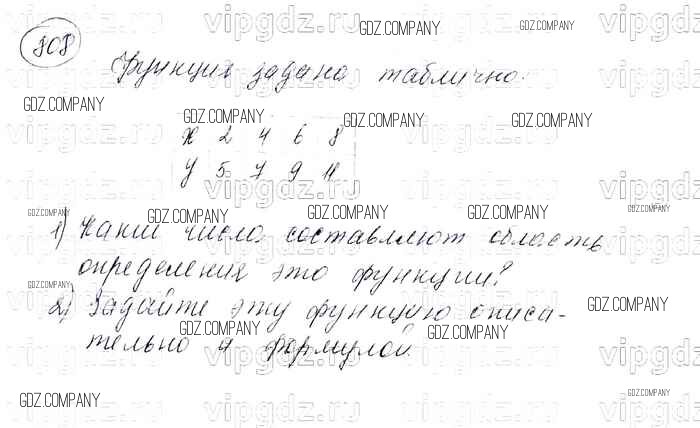 808
Функция задана таблично:
x 2 4 6 8
y 5 7 9 11
1) Какие числа составляют область
определения это функции?
2) Задайте эту функцию описа-
тельно и формулой.
vipgdz.ru
GDZ.COMPANY